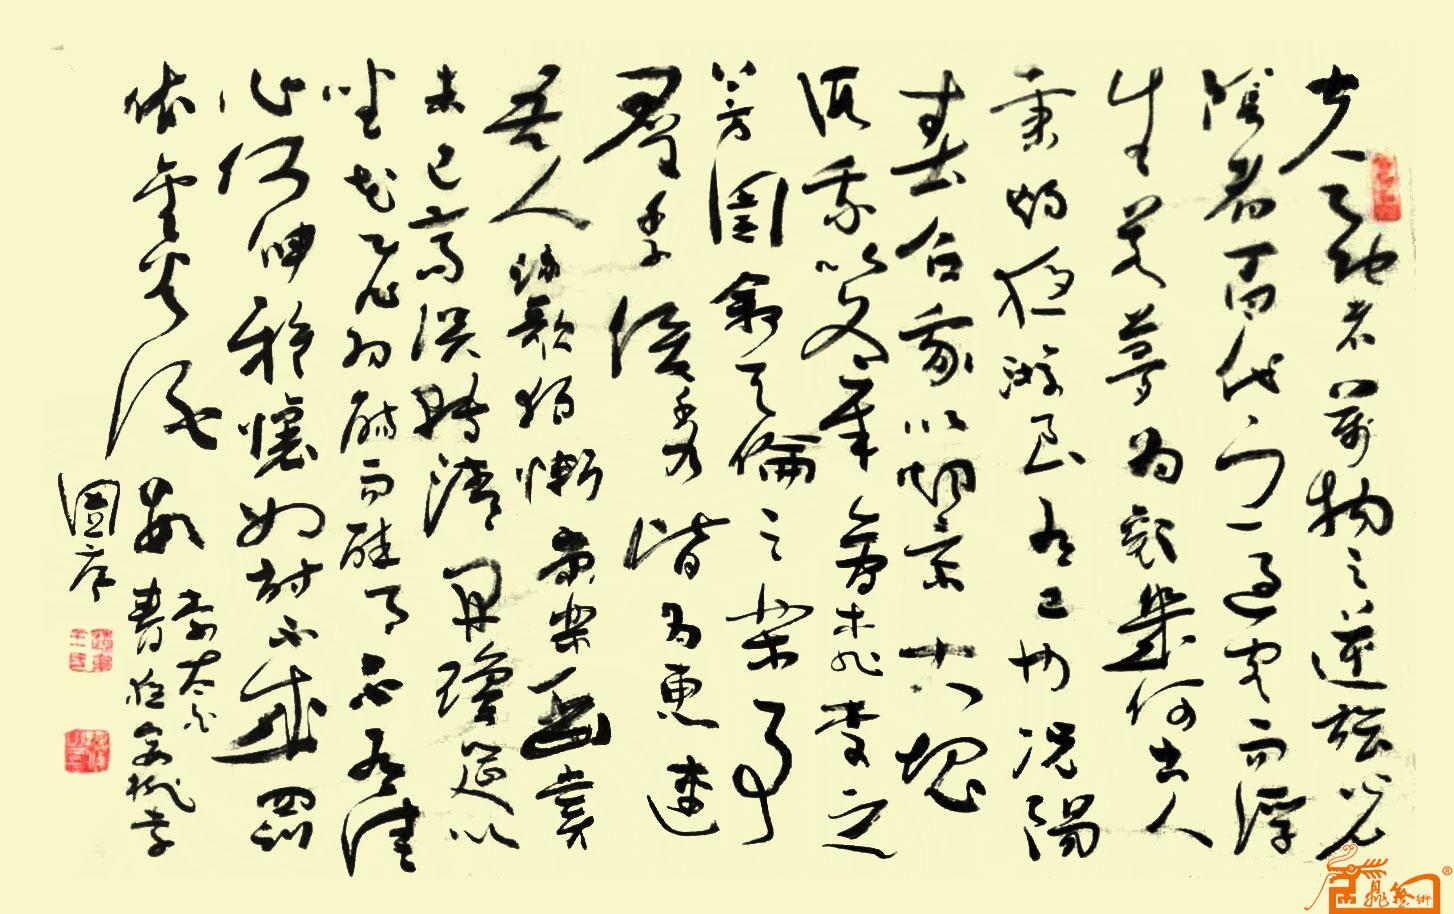 夫天地者萬物之逆旅光
陰者百代之過客而浮
生若夢為歡幾何古人
秉燭夜游良有以也況陽
春召我以煙景大塊
假我以文章會桃李之
芳園敘天倫之樂事
羣季俊秀皆為惠連
吾人詠歌獨慚康樂幽賞
未已高談轉清開瓊筵以
坐花飛羽觴而醉月不有佳
何伸雅懷如詩不成罰
依金谷酒
數
李太白
春夜宴桃李
園序